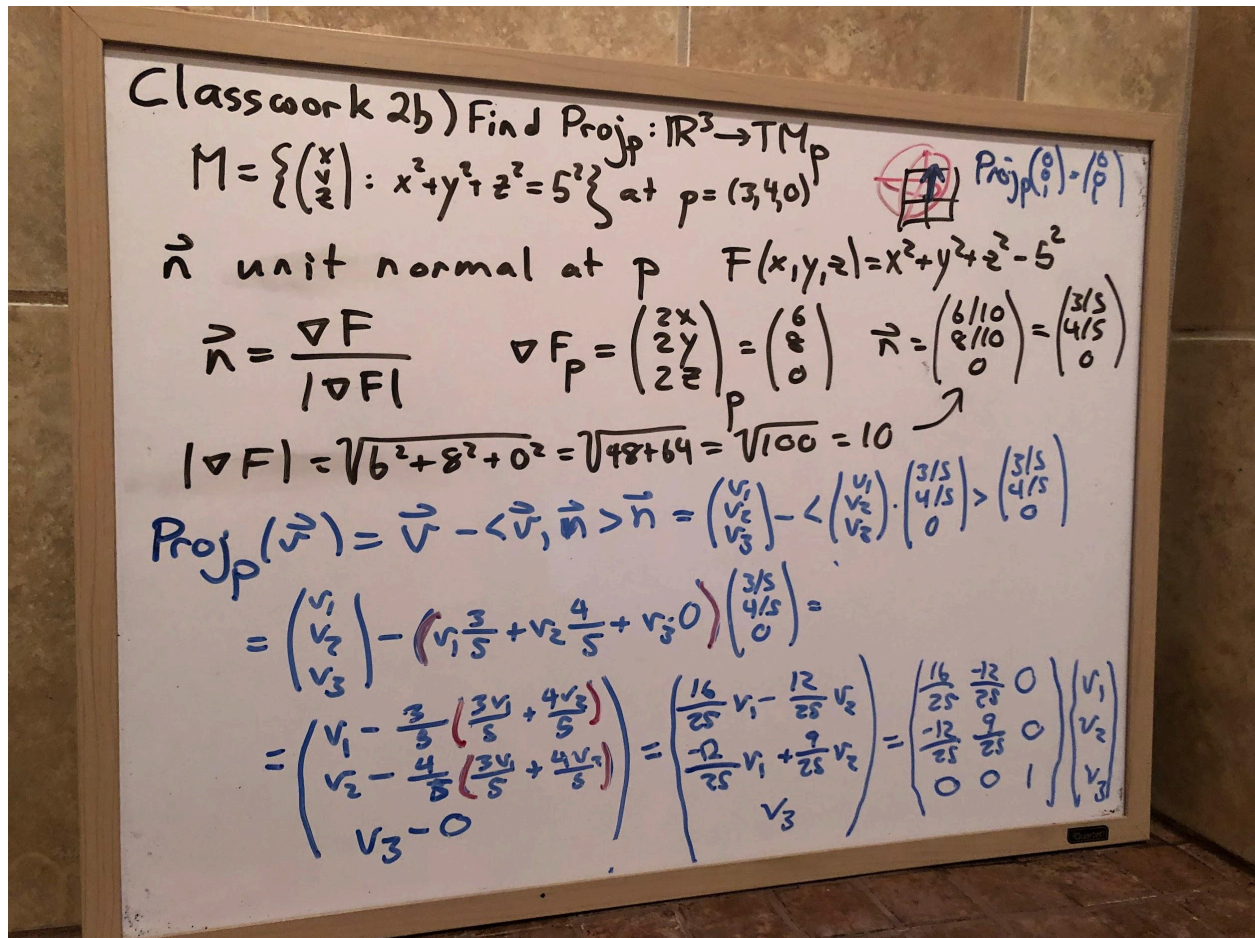 Classwork 2b) Find Proj_p : ℝ³ → TM_p
M = {(x y z) : x²+y²+z² = 5²} at p = (3,4,0)
Proj_p(0 0 1) = (0 0 1)
n⃗ unit normal at p F(x,y,z) = x²+y²+z² - 5²
n⃗ = ∇F / |∇F| ∇F_p = (2x 2y 2z)_p = (6 8 0) n⃗ = (6/10 8/10 0) = (3/5 4/5 0)
|∇F| = √(6²+8²+0²) = √(48+64) = √100 = 10
Proj_p(v⃗) = v⃗ - <v⃗, n⃗> n⃗ = (v₁ v₂ v₃) - <(v₁ v₂ v₂) · (3/5 4/5 0)> (3/5 4/5 0)
= (v₁ v₂ v₃) - (v₁ 3/5 + v₂ 4/5 + v₃ 0) (3/5 4/5 0) =
= (v₁ - 3/5 (3v₁/5 + 4v₂/5) v₂ - 4/5 (3v₁/5 + 4v₂/5) v₃ - 0) = (16/25 v₁ - 12/25 v₂ -12/25 v₁ + 9/25 v₂ v₃) = (16/25 -12/25 0 -12/25 9/25 0 0 0 1) (v₁ v₂ v₃)
Quartet